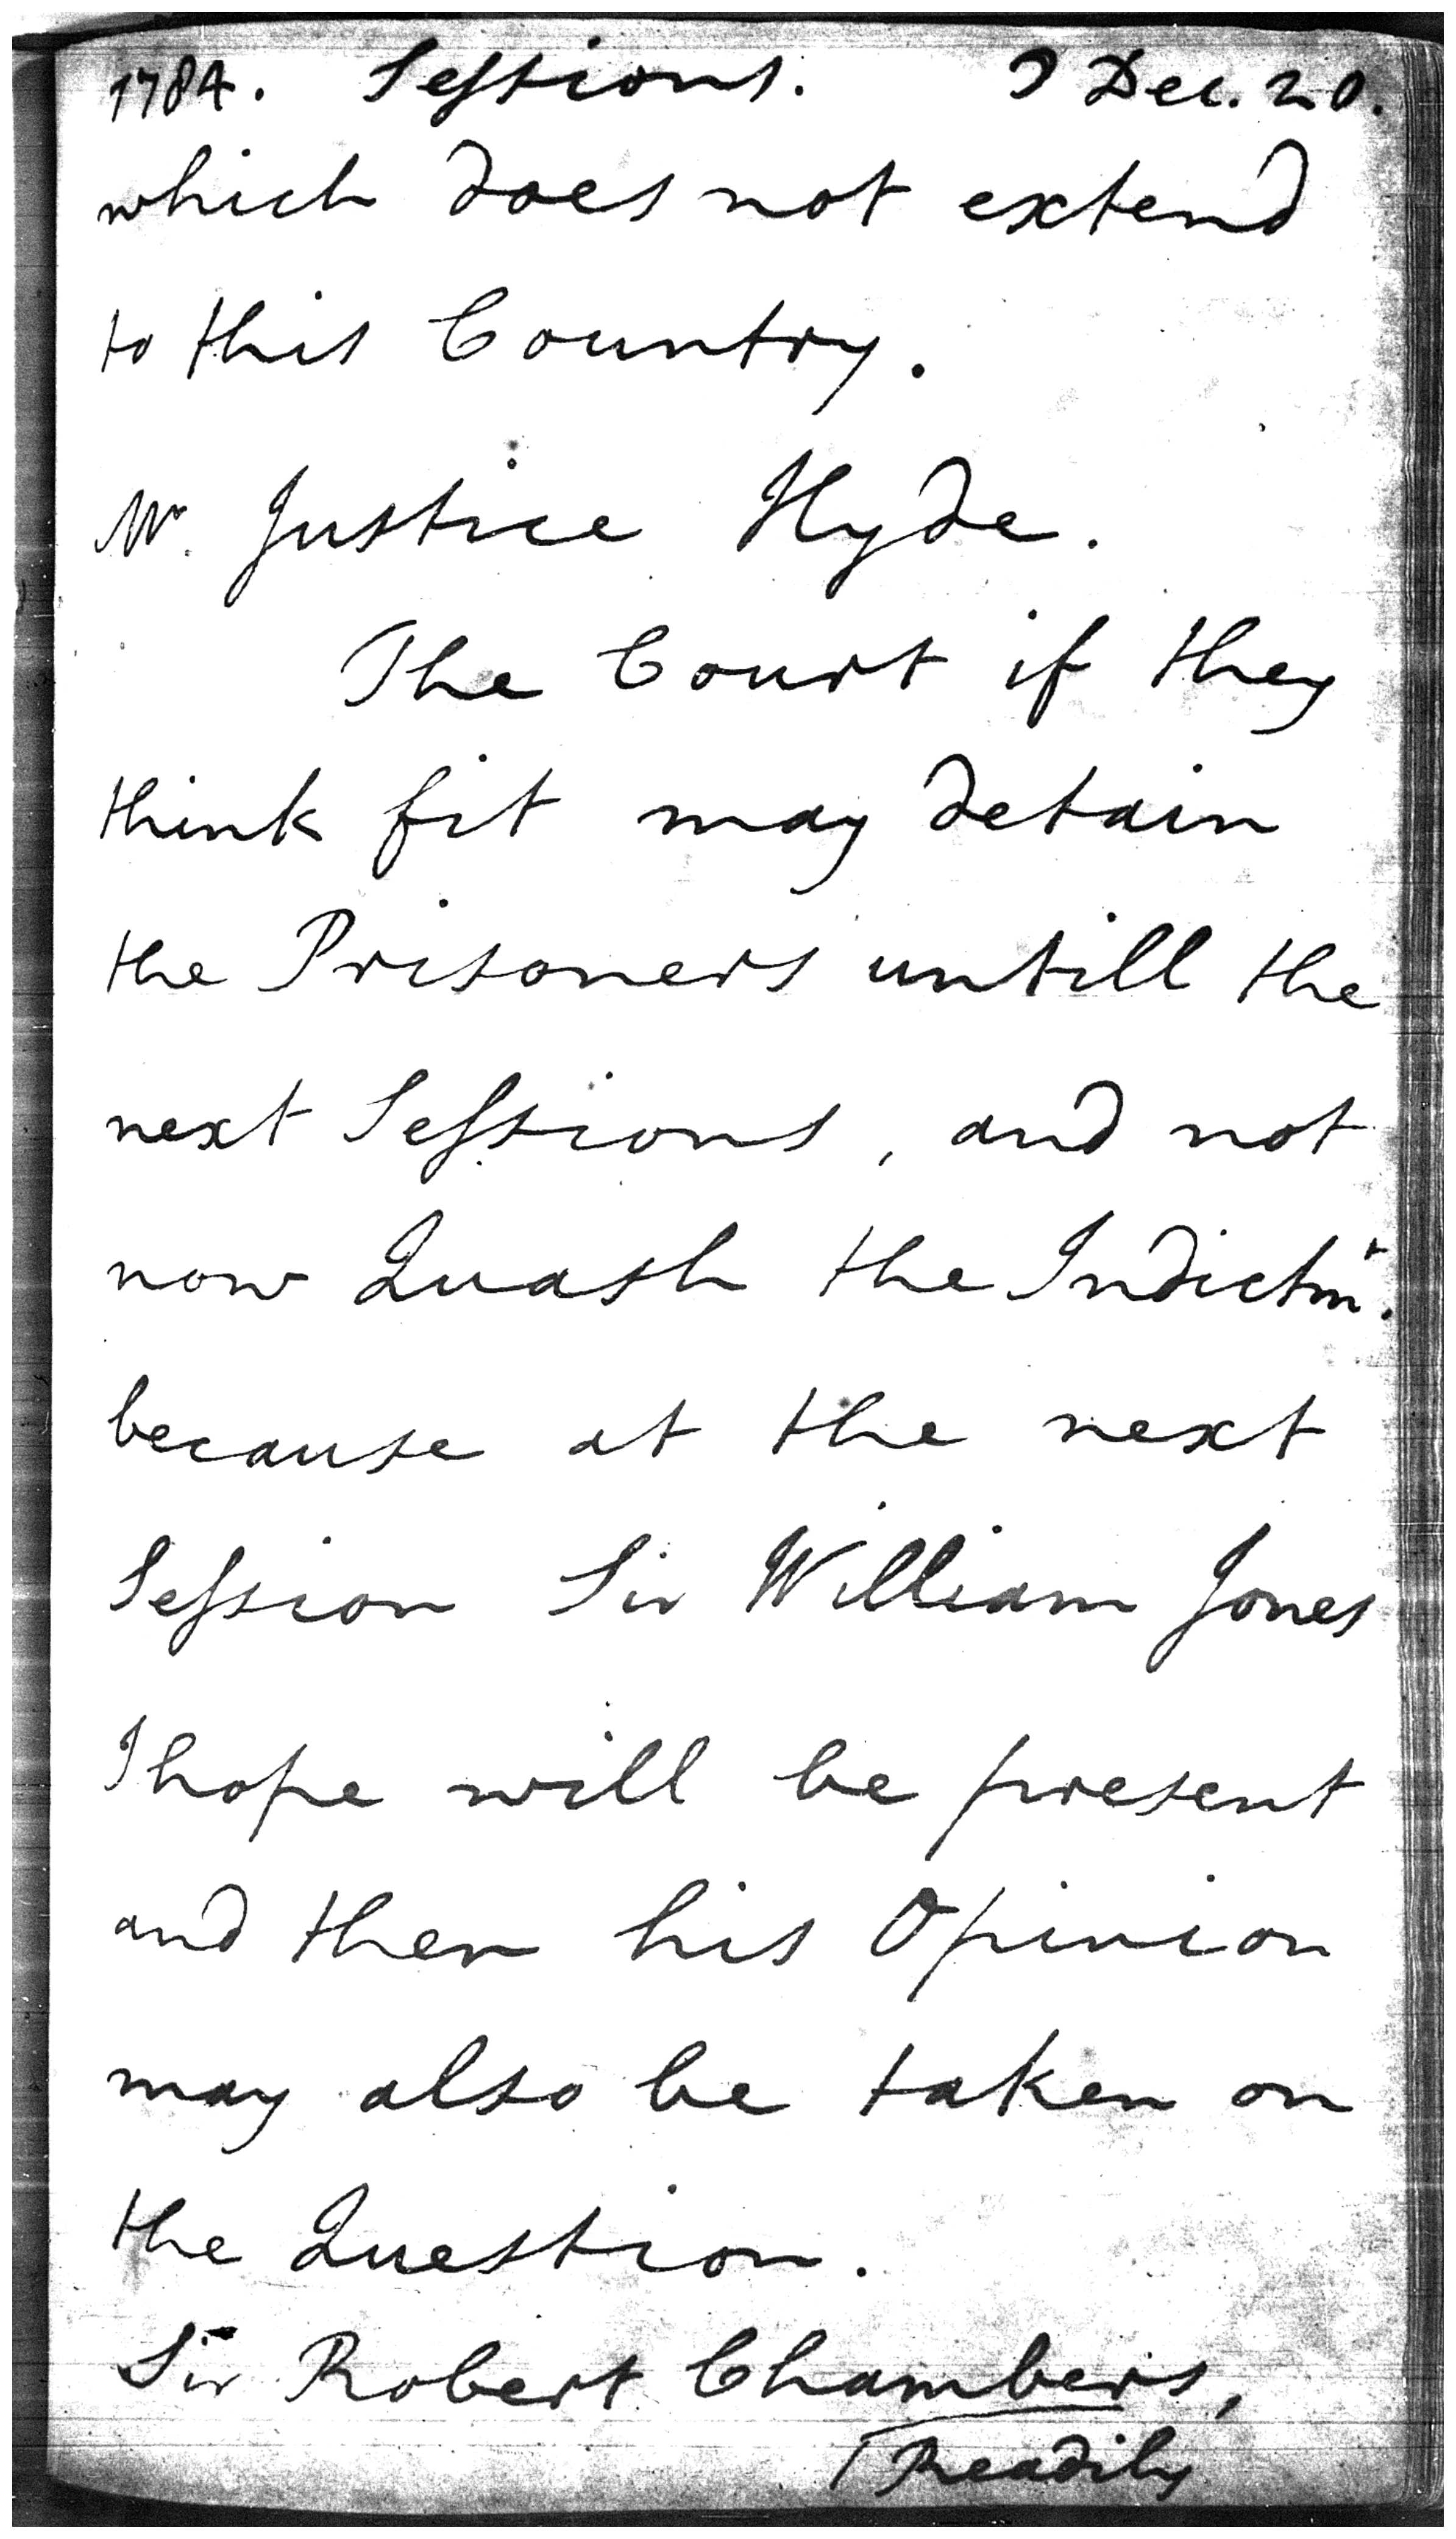 1784. Sessions. ☽ Dec. 20.
which does not extend
to this Country.
Mr. Justice Hyde.
The Court if they
think fit may detain
the Prisoners untill the
next Sessions, and not
now Quash the Indictmt.
because at the next
Session Sir William Jones
I hope will be present
and then his Opinion
may also be taken on
the Question.
Sir Robert Chambers,
Readily